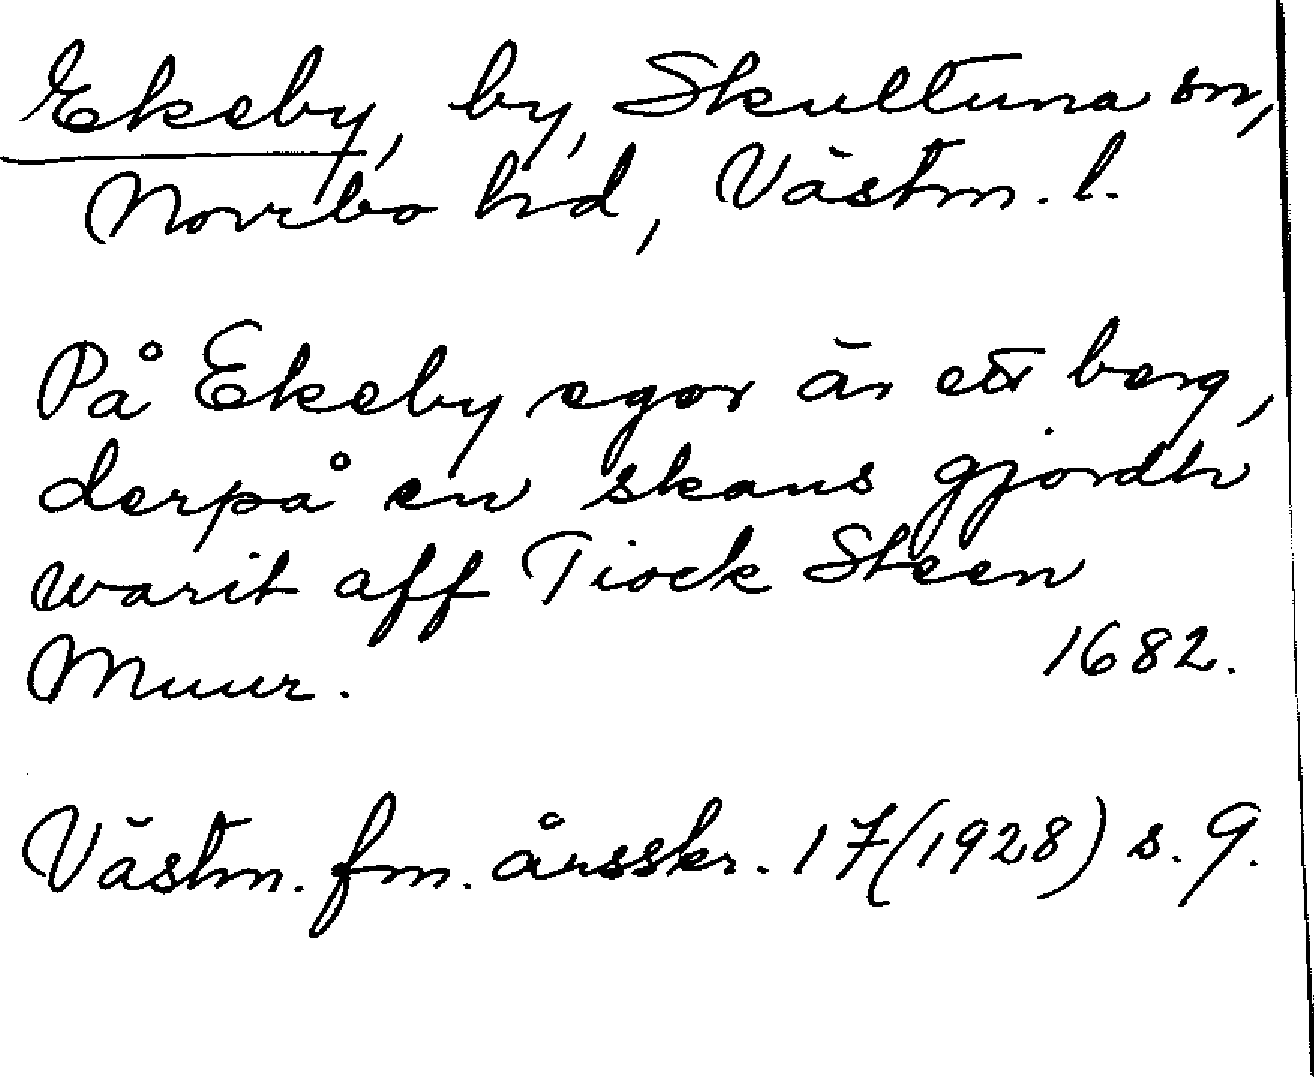 Ekeby, by, Skultuna sn,
Norrbo hd, Västm. l.
På Ekeby egor är ett berg,
derpå en skans gjordh
warit aff Tiock Steen
Muur.
1682.
Västm. fm. årsskr. 17(1928) s. 9.